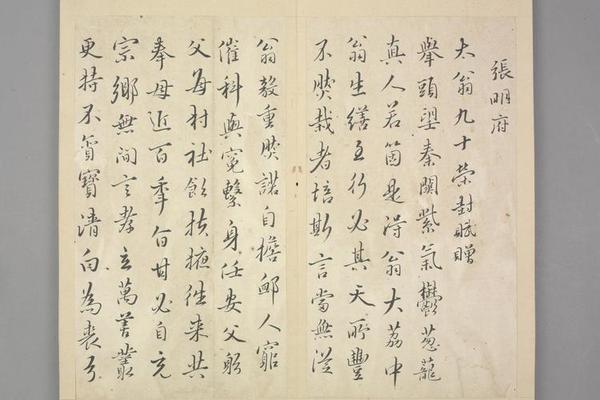 張明府
太翁九十榮封賦贈
舉頭望秦關紫氣鬱葱蘢
真人若箇是得翁大荔中
翁生繕五行必其天所豐
不然栽者培斯言當無從
翁教重然諾自擔鄉人窮
催科與寃繫身任安父躬
父每村社飲扶掖徃来共
奉母近百年旨甘必自充
宗鄉無間言孝立萬善叢
更持不貪寶清白為裘弓